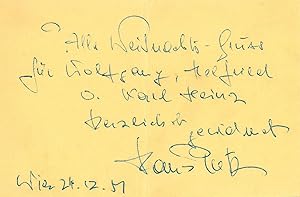 Alls Weihnachts-Gruss
für Wolfgang, Helfried
u. Karl Heinz
herzlichst
gewidmet
Hans
Wien 24.12.51